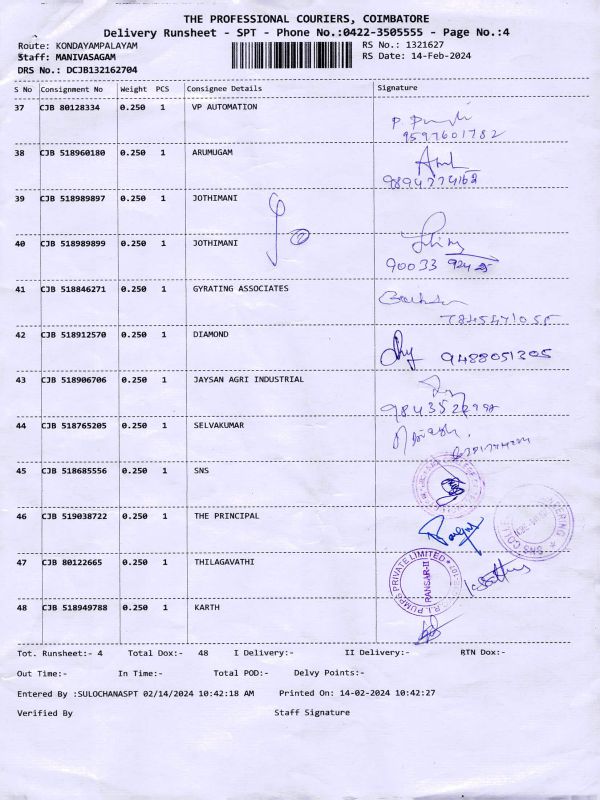 THE PROFESSIONAL COURIERS, COIMBATORE
Delivery Runsheet - SPT - Phone No.:0422-3505555 - Page No.:4
Route: KONDAYAMPALAYAM RS No.: 1321627
Staff: MANIVASAGAM RS Date: 14-Feb-2024
DRS No.: DCJB132162704
S No Consignment No Weight PCS Consignee Details Signature
37 CJB 80128334 0.250 1 VP AUTOMATION
9597601782
38 CJB 518960180 0.250 1 ARUMUGAM
9894774162
39 CJB 518989897 0.250 1 JOTHIMANI
40 CJB 518989899 0.250 1 JOTHIMANI
90033
41 CJB 518846271 0.250 1 GYRATING ASSOCIATES
42 CJB 518912570 0.250 1 DIAMOND
9488051305
43 CJB 518906706 0.250 1 JAYSAN AGRI INDUSTRIAL
44 CJB 518765205 0.250 1 SELVAKUMAR
45 CJB 518685556 0.250 1 SNS
46 CJB 519038722 0.250 1 THE PRINCIPAL
47 CJB 80122665 0.250 1 THILAGAVATHI
PUMPS PRIVATE LIMITED
RANSAR-II
48 CJB 518949788 0.250 1 KARTH
Tot. Runsheet:- 4 Total Dox:- 48 I Delivery:- II Delivery:- RTN Dox:-
Out Time:- In Time:- Total POD:- Delvy Points:-
Entered By :SULOCHANASPT 02/14/2024 10:42:18 AM Printed On: 14-02-2024 10:42:27
Verified By Staff Signature